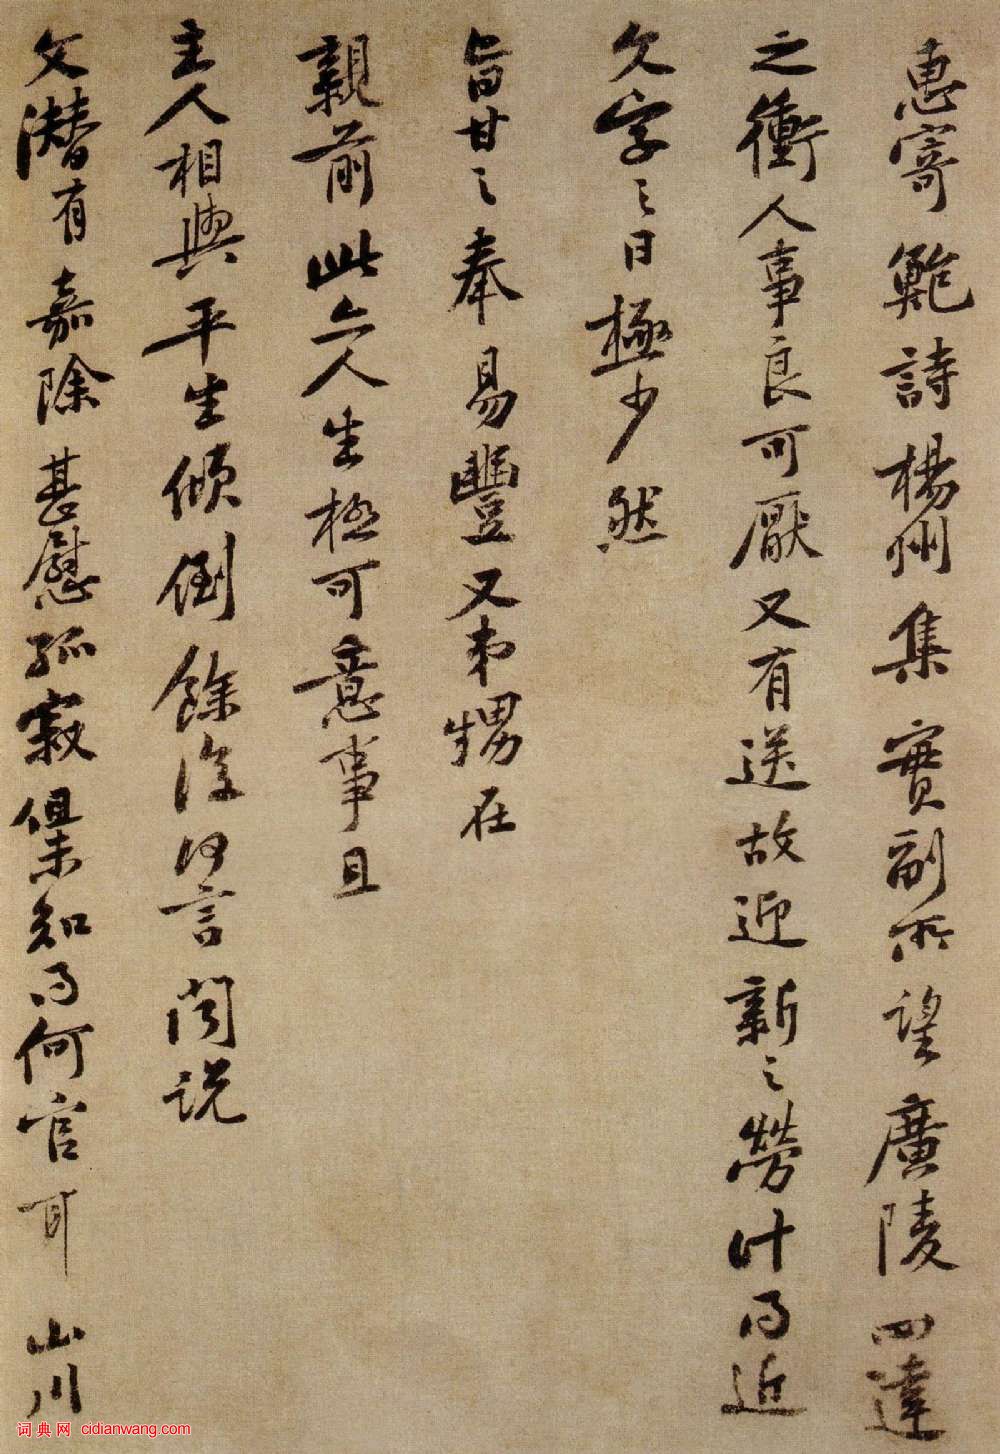 惠寄鮑詩楊州集實副所望廣陵四達
之衝人事良可厭又有送故迎新之勞計得近
文字之日極少然
旨甘之奉易豐又弟甥在
親前此亦人生極可意事且
主人相與平生傾倒餘復何言聞說
文潛有嘉除甚慰孤寂但未知得何官耳山川
词典网 cidianwang.com